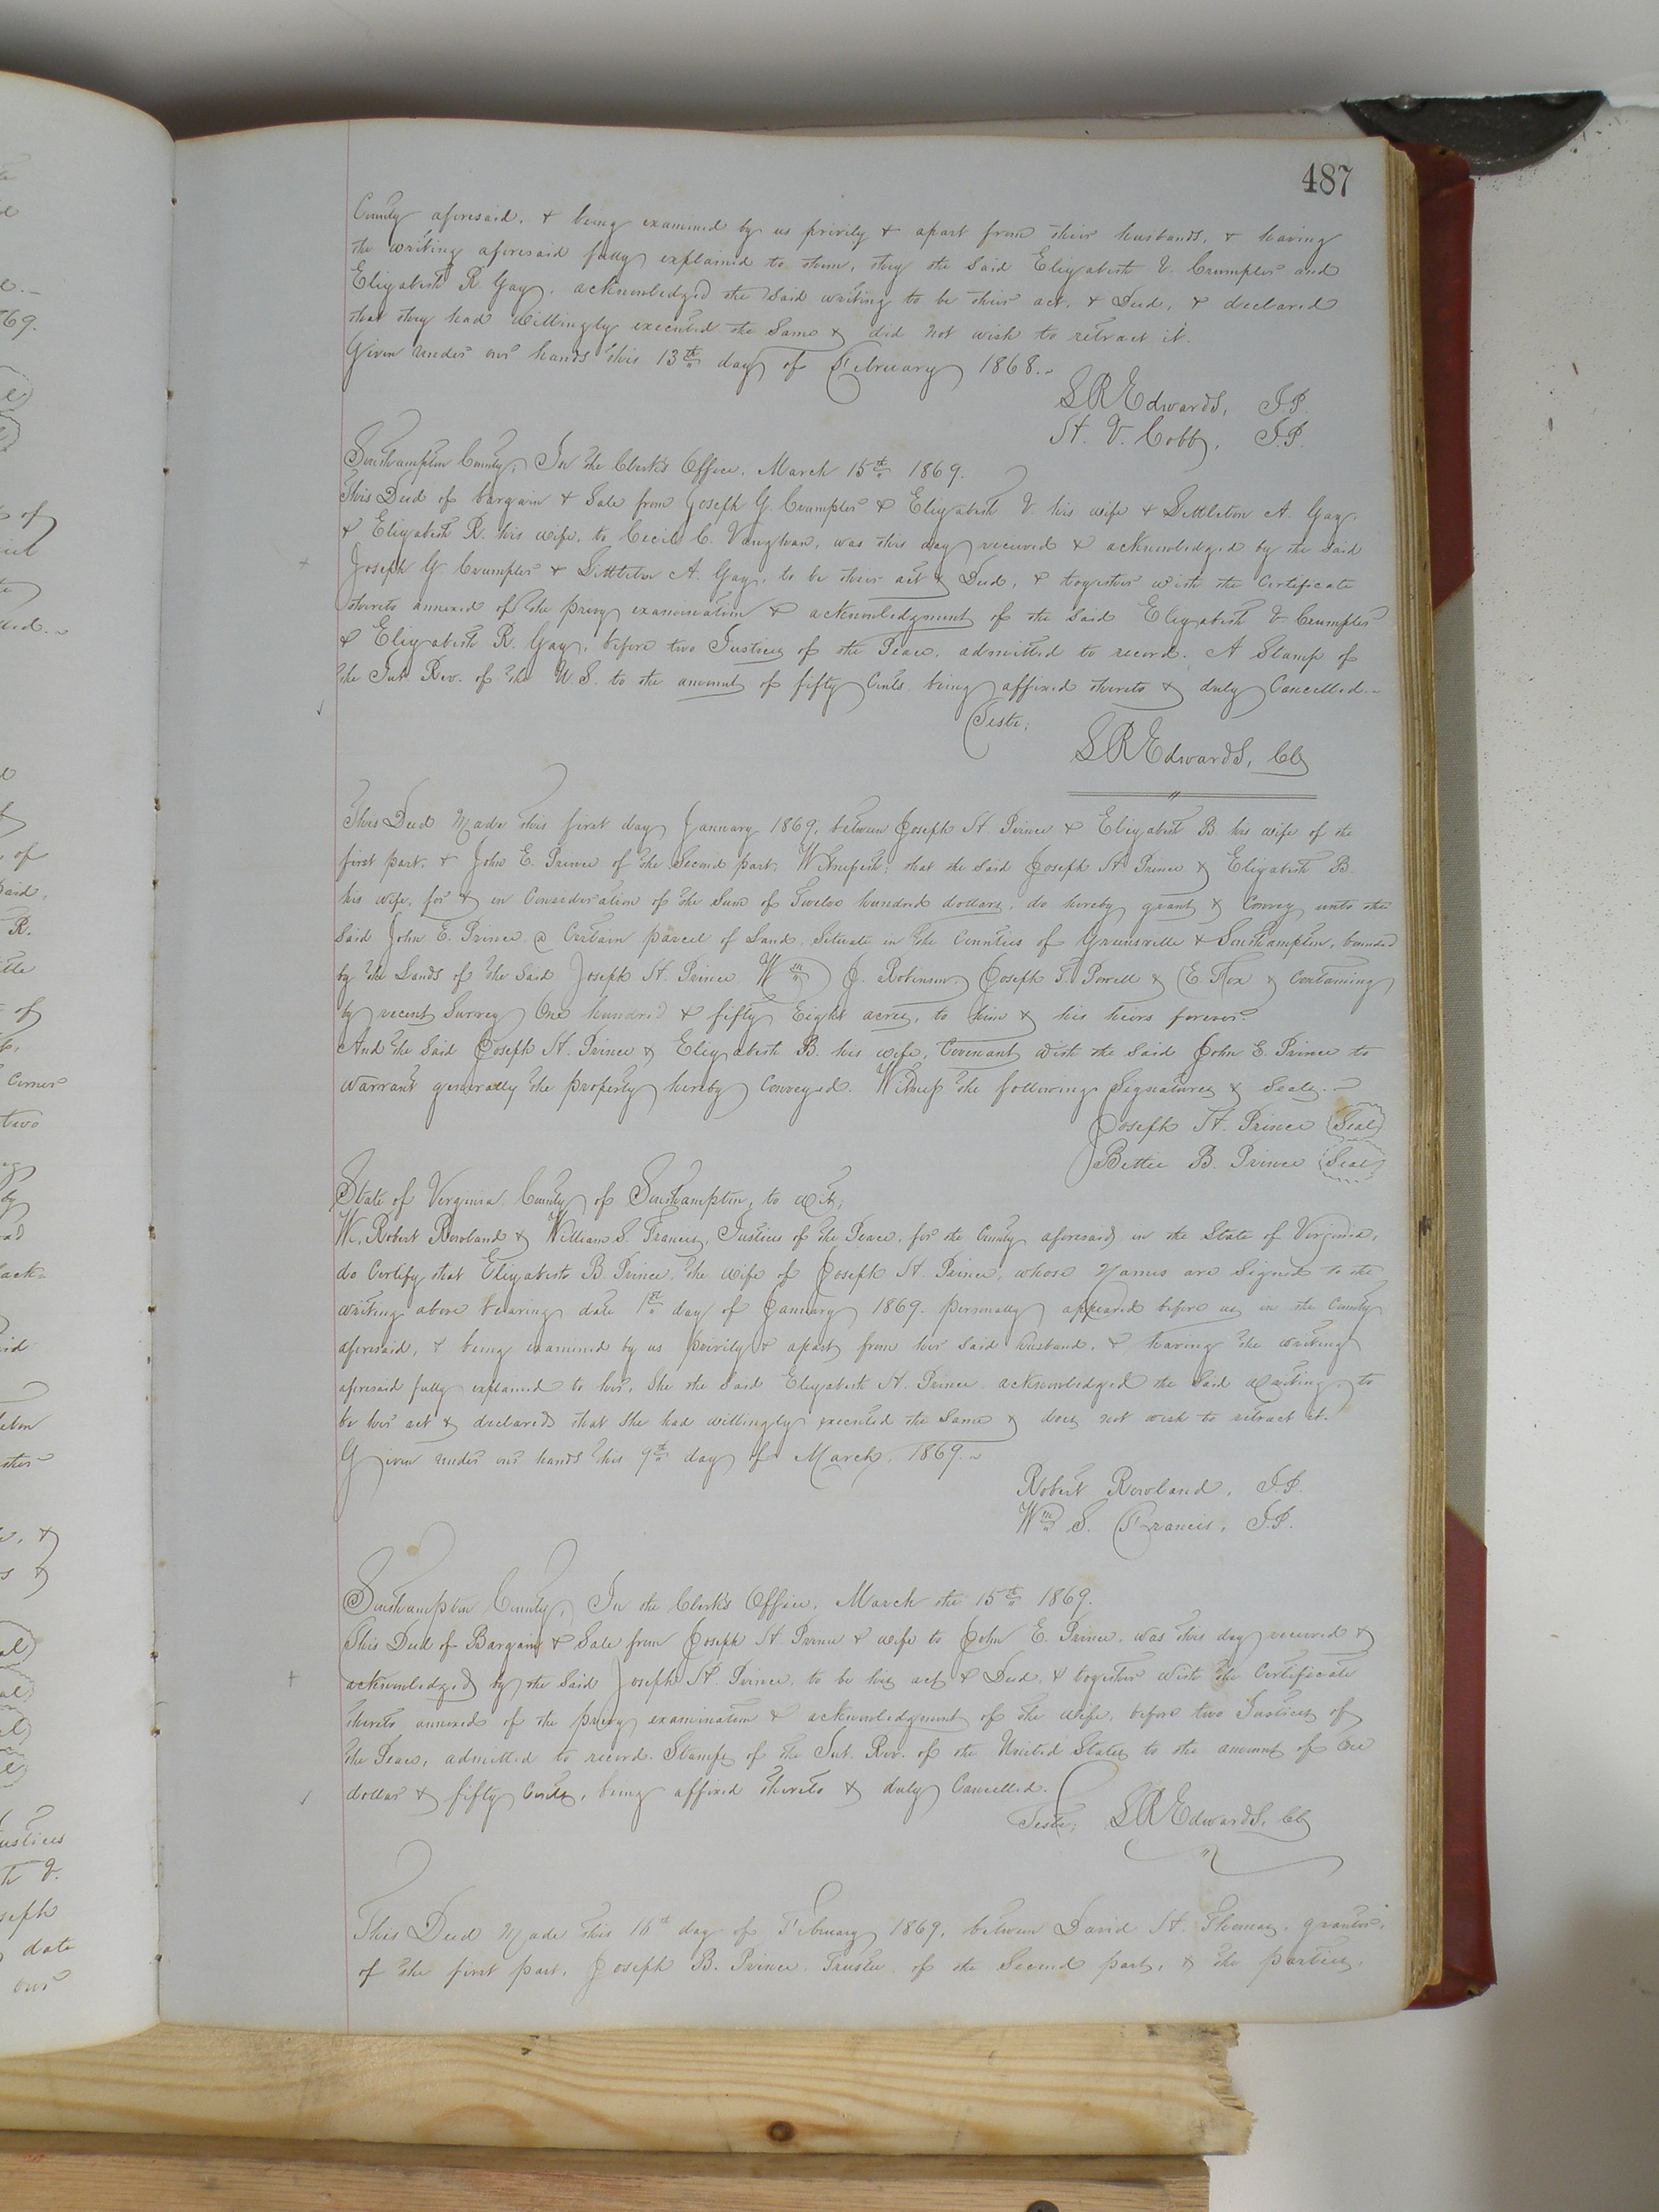 487
County aforesaid, & being examined by us privily & apart from their husbands, & having
the writing aforesaid fully explained to them, they the said Elizabeth V. Crumpler and
Elizabeth R. Gay, acknowledged the said writing to be their act, & Deed, & declared
that they had willingly executed the same & did not wish to retract it.
Given under our hands this 13th day of February 1868.
L R Edwards, J.P.
H. V. Cobb, J.P.
Southampton County, In the Clerk's Office, March 15th 1869.
This Deed of bargain & Sale from Joseph G. Crumpler & Elizabeth V. his wife & Littleton A. Gay,
& Elizabeth R. his wife, to Cecil C. Vaughan, was this day received & acknowledged by the said
Joseph G Crumpler & Littleton A. Gay, to be their act & Deed, & together with the Certificate
thereto annexed of the privy examination & acknowledgment of the said Elizabeth V Crumpler
& Elizabeth R. Gay, before two Justices of the Peace, admitted to record. A Stamp of
the Int. Rev. of the U. S. to the amount of fifty Cents being affixed thereto & duly Cancelled.
Teste;
L R Edwards, Clk
This Deed Made this first day January 1869, between Joseph H. Prince & Elizabeth B. his wife of the
first part, & John E. Prince of the Second part, Witnesseth; that the said Joseph H Prince & Elizabeth B.
his wife, for & in Consideration of the Sum of Twelve hundred dollars, do hereby grant & Convey unto the
said John E. Prince a Certain parcel of Land, Situate in the Counties of Greensville & Southampton, bounded
by the Lands of the said Joseph H. Prince Wm J. Robinson, Joseph T. Powell & E. Fox & Containing
by recent Survey One hundred & fifty Eight acres, to him & his heirs forever.
And the said Joseph H. Prince & Elizabeth B. his wife, Covenant with the said John E. Prince to
warrant generally the property hereby Conveyed. Witness the following Signatures & Seals.
Joseph H. Prince Seal
Bettie B. Prince Seal
State of Virginia County of Southampton, to wit;
We, Robert Rowland & William S. Francis, Justices of the Peace, for the County aforesaid, in the State of Virginia,
do Certify that Elizabeth B Prince, the wife of Joseph H. Prince, whose Names are Signed to the
writing above bearing date 1st day of January 1869. personally appeared before us in the County
aforesaid, & being examined by us privily & apart from her said husband, & having the writing
aforesaid fully explained to her, She the said Elizabeth H. Prince acknowledged the said writing to
be her act & declared that She had willingly executed the same & does not wish to retract it.
Given under our hands this 9th day of March, 1869.
Robert Rowland, J.P.
Wm S. Francis, J.P.
Southampton County, In the Clerk's Office, March the 15th 1869.
This Deed of Bargain & Sale from Joseph H Prince & wife to John E. Prince, was this day received &
acknowledged by the said Joseph H. Prince, to be his act & Deed, & together with the Certificate
thereto annexed of the privy examination & acknowledgment of the wife, before two Justices of
the Peace, admitted to record. Stamps of the Int. Rev. of the United States to the amount of One
dollar & fifty Cents, being affixed thereto & duly Cancelled.
Teste; L R Edwards, Clk
This Deed Made this 16th day of February 1869, between David H. Thomas, grantor,
of the first part, Joseph B. Prince, Trustee of the Second part, & the parties,